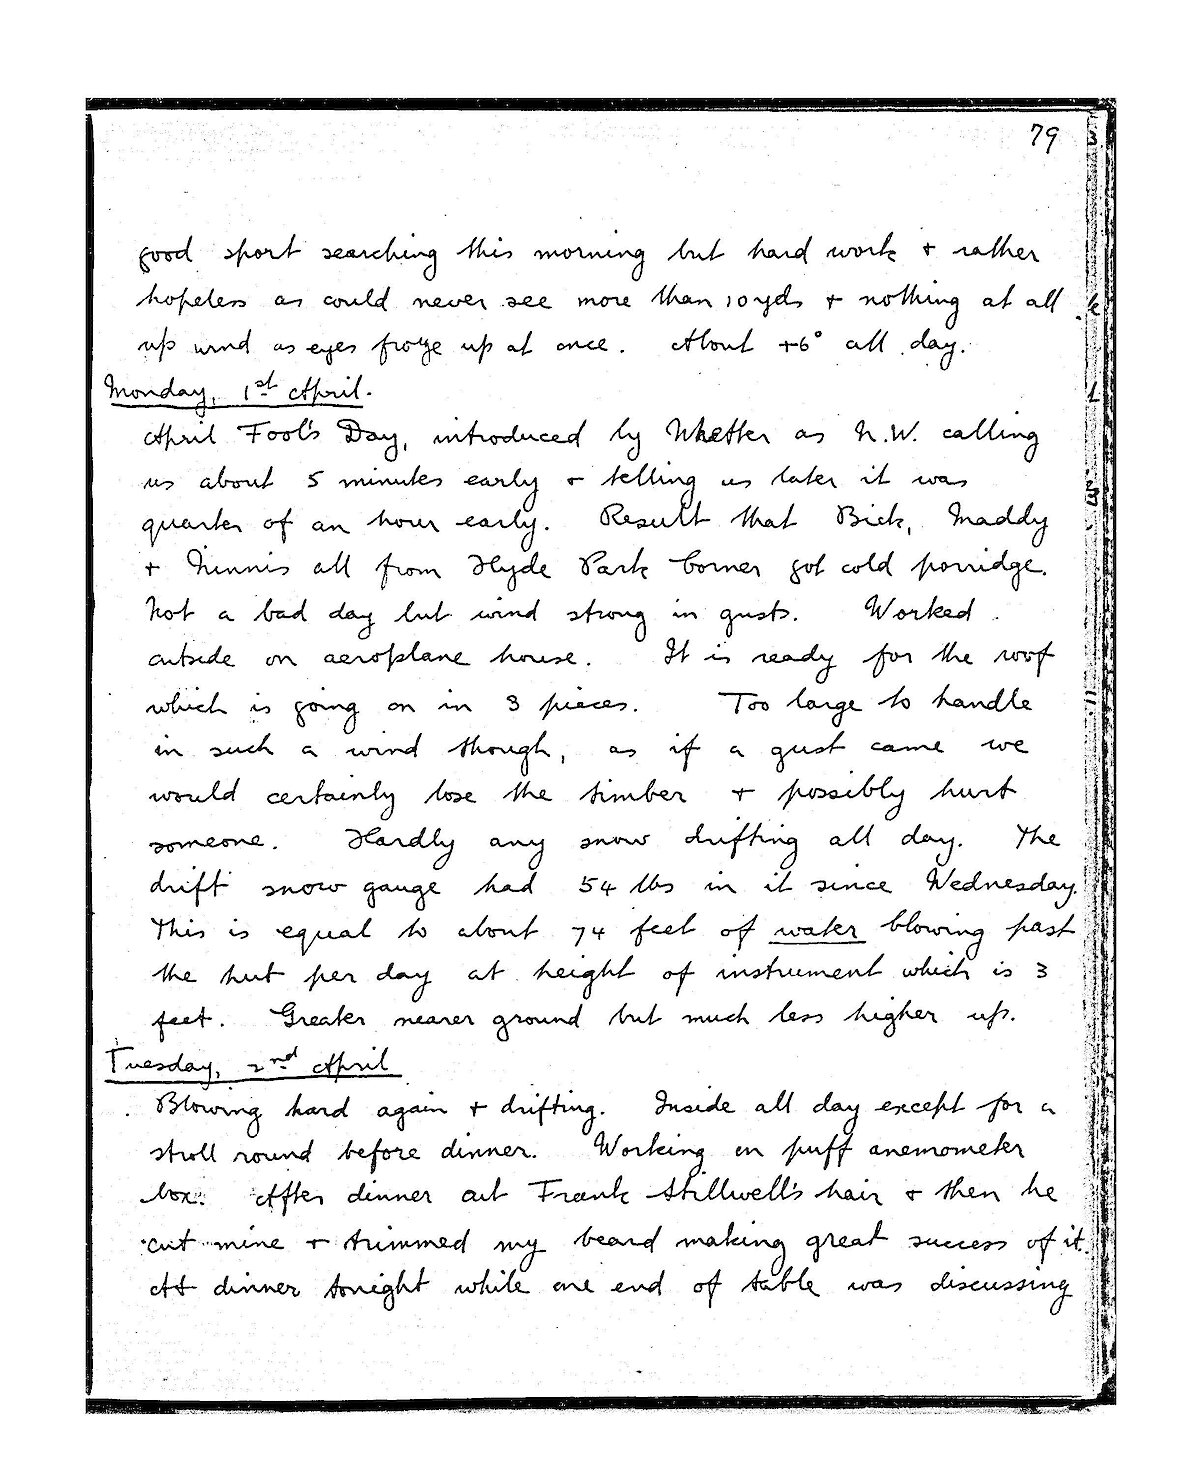 79
good sport searching this morning but hard work + rather
hopeless as could never see more than 10 yds + nothing at all
up wind as eyes froze up at once. About +6° all day.
Monday, 1st April.
April Fool's Day, introduced by Whetter as N.W. calling
us about 5 minutes early + telling us later it was
quarter of an hour early. Result that Bick, Maddy
+ Ninnis all from Hyde Park Corner got cold porridge.
Not a bad day but wind strong in gusts. Worked
outside on aeroplane house. It is ready for the roof
which is going on in 3 pieces. Too large to handle
in such a wind though, as if a gust came we
would certainly lose the timber + possibly hurt
someone. Hardly any snow drifting all day. The
drift snow gauge had 54 lbs in it since Wednesday.
This is equal to about 74 feet of water blowing past
the hut per day at height of instrument which is 3
feet. Greater nearer ground but much less higher up.
Tuesday, 2nd April
Blowing hard again + drifting. Inside all day except for a
stroll round before dinner. Working on puff anemometer
box. After dinner cut Frank Stillwell's hair + then he
cut mine + trimmed my beard making great success of it.
At dinner tonight while one end of table was discussing